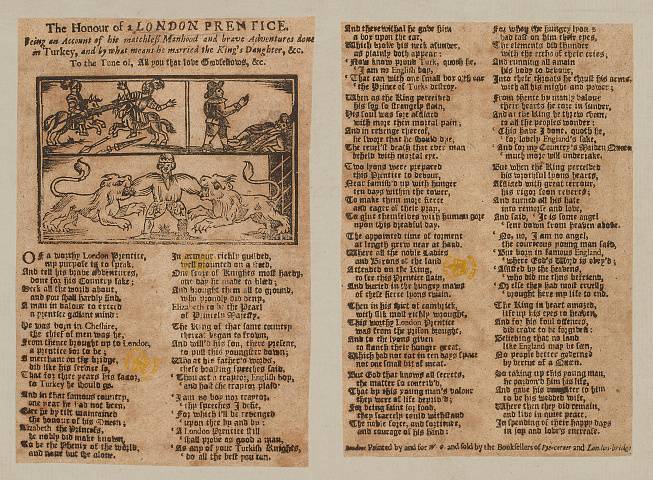 The Honour of a LONDON PRENTICE.
Being an Account of his matchless Manhood and brave Adventures done
in Turkey, and by what means he married the King's Daughter, &c.
To the Tune of, All you that love Goodfellows, &c.
OF a worthy London Prentice,
my purpose is to speak,
And tell his brave Adventures,
done for his Country sake;
Seek all the world about
and you shall hardly find,
A man in valour to exceed
a prentice gallant mind:
He was born in Cheshire,
the chief of men was he,
From thence brought up to London,
a prentice for to be;
A merchant on the bridge,
did like his service so,
That for three years his factor,
to Turkey he should go.
And in that famous country,
one year he had not been,
Ere he by tilt maintained
the honour of his Queen;
Elizabeth the Princess,
he nobly did make known,
To be the Phenix of the world,
and none but she alone.
In armour richly guilded,
well mounted on a steed,
One score of Knights most hardy,
one day he made to bleed;
And brought them all to ground,
who proudly did deny,
Elizabeth to be the Pearl
of Princely Majesty.
The King of that same country
thereat began to frown,
And will'd his son, there present,
to pull this youngster down;
Who at his father's words,
these boasting speeches said,
Thou art a traytor, English boy,
and hast the traytor plaid:
I am no boy nor traytor,
thy speeches I defie,
For which I'll be revenged
upon thee by and by:
A London Prentice still
shall prove as good a man,
As any of your Turkish Knights,
do all the best you can.
And therewithal he gave him
a box upon the ear,
Which broke his neck asunder,
as plainly doth appear:
Now know proud Turk, quoth he,
I am no English boy,
That can with one small box oth'ear
the Prince of Turks destroy.
When as the King perceived
his son so strangely slain,
His soul was sore afflicted
with more then mortal pain;
And in revenge thereof,
he swore that he should dye,
The cruel'st death that ever man
beheld with mortal eye.
Two lyons were prepared
this Prentice to devour,
Near famish'd up with hunger
ten days within the tower,
To make them more fierce
and eager of their pray,
To glut themselves with human gore
upon this dreadful day.
The appointed time of torment
at length grew near at hand,
Where all the noble Ladies
and Barons of the land
Attended on the King,
to see this Prentice slain,
And buried in the hungry maws
of these fierce lyons twain.
Then in his shirt of cambrick,
with silk most richly wrought,
This worthy London Prentice
was from the prison brought,
And to the lyons given
to stanch their hunger great,
Which had not eat in ten days space
not one small bit of meat.
But God that knows all secrets,
the matter so contriv'd,
That by this young man's valour
they were of life depriv'd;
For being faint for food,
they scarcely could withstand
The noble force, and fortitude,
and courage of his hand:
For when the hungry lyons
had cast on him their eyes,
The elements did thunder
with the eccho of their cries;
And running all amain
his body to devour,
Into their throats he thrust his arms,
with all his might and power;
From thence by manly valour
their hearts he tore in sunder,
And at the King he threw them,
to all the peoples wonder:
This have I done, quoth he,
for lovely England's sake,
And for my Country's Maiden Queen
much more will undertake.
But when the King perceived
his wrothful lyons hearts,
Afflicted with great terrour,
his rigor soon reverts;
And turned all his hate
into remorse and love,
And said, It is some angel
sent down from heaven above.
No, no, I am no angel,
the courteous young man said,
But born in famous England,
where God's Word is obey'd;
Assisted by the heavens,
who did me thus befriend,
Or else they had most cruelly
brought here my life to end.
The King in heart amazed,
lift up his eyes to heaven,
And for his foul offences,
did crave to be forgiven:
Believing that no land
like England may be seen,
No people better governed
by vertue of a Queen.
So taking up this young man,
he pardon'd him his life,
And gave his daughter to him
to be his wedded wife,
Where then they did remain,
and live in quiet peace,
In spending of their happy days
in joy and love's encrease.
London: Printed by and for W. O. and sold by the Booksellers of Pye-corner and London-bridge